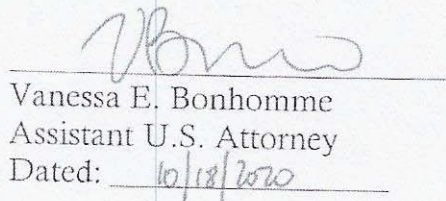 Vanessa E. Bonhomme
Assistant U.S. Attorney
Dated: 10/18/2020